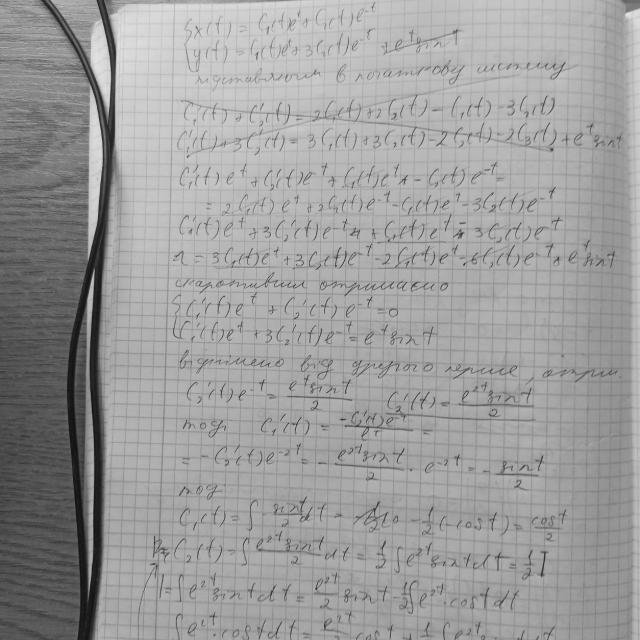 {x(t) = C₁(t)eᵗ + C₂(t)e⁻ᵗ
{y(t) = C₁(t)eᵗ + 3C₂(t)e⁻ᵗ
підставляєм в початкову систему
C₁'(t)eᵗ + C₁(t)eᵗ + C₂'(t)e⁻ᵗ - C₂(t)e⁻ᵗ =
= 2C₁(t)eᵗ + 2C₂(t)e⁻ᵗ - C₁(t)eᵗ - 3C₂(t)e⁻ᵗ
C₁'(t)eᵗ + 3C₂'(t)e⁻ᵗ + C₁(t)eᵗ - 3C₂(t)e⁻ᵗ
= 3C₁(t)eᵗ + 3C₂(t)e⁻ᵗ - 2C₁(t)eᵗ - 6C₂(t)e⁻ᵗ + eᵗ sin t
скоротивши отримаємо
{C₁'(t)eᵗ + C₂'(t)e⁻ᵗ = 0
{C₁'(t)eᵗ + 3C₂'(t)e⁻ᵗ = eᵗ sin t
віднімемо від другого перше, отрим
C₂'(t)e⁻ᵗ = eᵗ sin t / 2 C₂'(t) = e²ᵗ sin t / 2
тоді C₁'(t) = -C₂'(t)e⁻ᵗ / eᵗ =
= -C₂'(t)e⁻²ᵗ = - e²ᵗ sin t / 2 · e⁻²ᵗ = - sin t / 2
тоді
C₁(t) = ∫ sin t / 2 dt = - 1/2 (-cos t) = cos t / 2
C₂(t) = ∫ e²ᵗ sin t / 2 dt = 1/2 ∫ e²ᵗ sin t dt = 1/2 I
I = ∫ e²ᵗ sin t dt = e²ᵗ / 2 sin t - 1/2 ∫ e²ᵗ · cos t dt
∫ e²ᵗ · cos t dt = e²ᵗ / 2 cos t + 1/2 ∫